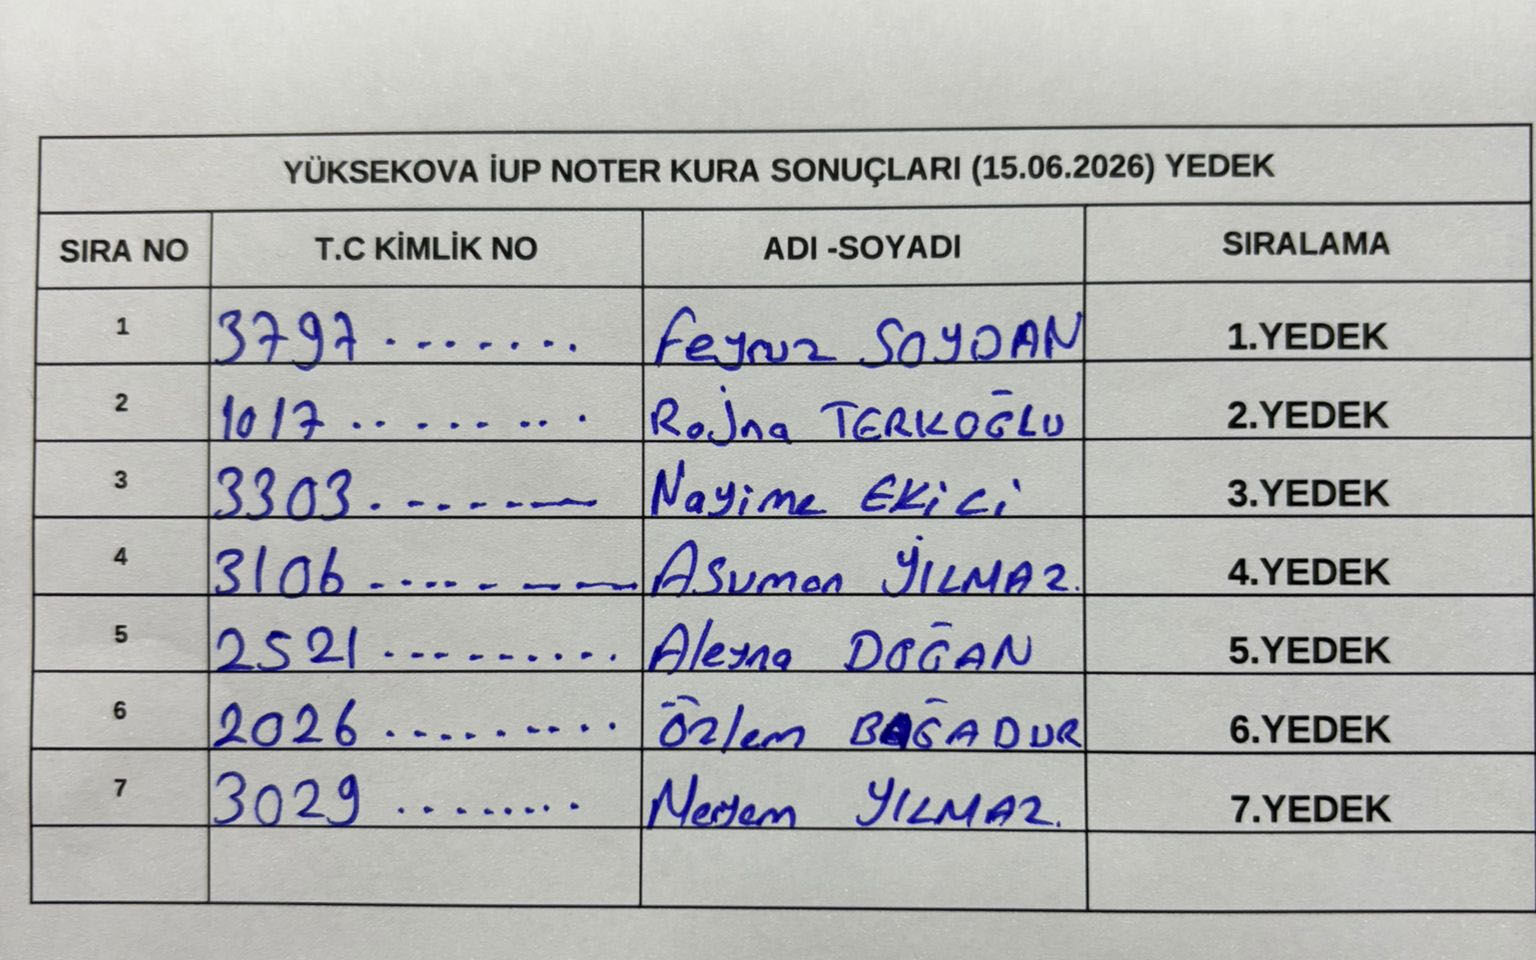 YÜKSEKOVA İUP NOTER KURA SONUÇLARI (15.06.2026) YEDEK
SIRA NO T.C KİMLİK NO ADI -SOYADI SIRALAMA
1 3797 ........ Feyruz SOYDAN 1.YEDEK
2 1017 ......... Rojna TERKOĞLU 2.YEDEK
3 3303 . - - - - — Nayime EKİCİ 3.YEDEK
4 3106 - - - - - — — Asuman YILMAZ. 4.YEDEK
5 2521 .......... Aleyna DOĞAN 5.YEDEK
6 2026 .......... Özlem BAĞADUR 6.YEDEK
7 3029 ........ Meryem YILMAZ. 7.YEDEK